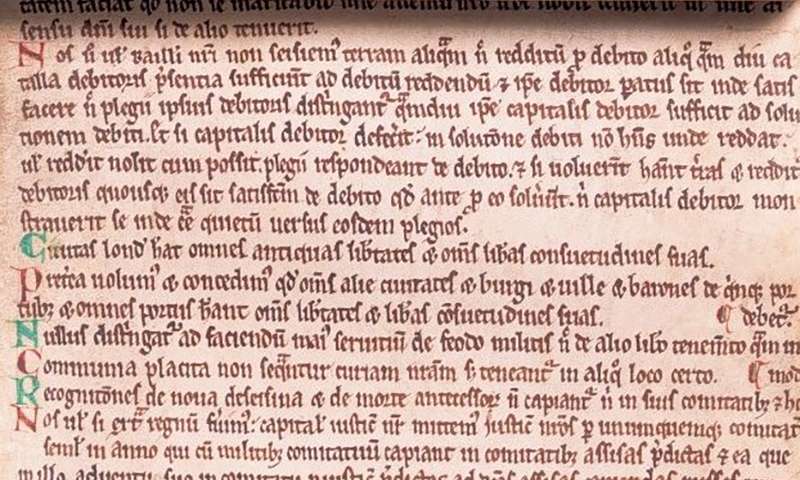 sensu dñi sui si de alio tenuerit.
Nos ū ul' bailli nr̄i non seisiem' terram aliq̄m ñ redditū p debito aliq̊ q̄m diu ca
talla debitoris p̄sentia sufficiūt ad debitū reddendū ⁊ ip̄e debitor patus sit inde satis
facere ñ plegii ipsius debitoris distⁱngant᷑ q̄mdiu ip̄e capitalis debitor sufficit ad solu
tionem debiti. Et si capitalis debitor defec̄it in solutōne debiti nō hñs unde reddat.
ul' redd'e nolit cum possit. plegii respondeant de debito. ⁊ si uoluerīt hānt t̄ras & reddit'
debitoris quousq; eis sit satisfc̄m de debito qd̄ ante p eo soluerīt. ñ capitalis debitor mon
straverit se inde eē quietū uersus eosdem plegios.
Ciuitas lond' h̄at omnes antiquas lib̄tates & om̄s lib̄as consuetudines suas.
Preterea uolum' & concedim' qd̄ om̄s alie ciuitates & burgi & uille & barones de q̄nq; por
tub; & omnes portus h̄ant om̄s lib̄tates & lib̄as cōsuetudines suas. ¶ debet᷑.
Nullus distⁱngat᷑ ad faciendū mai' seruitiū de feodo militis ñ de alio lib̄o tenem̄to q̄m in
Communia placita non seq̄ntur curiam nr̄am s; teneant᷑ in aliq̊ loco certo. ¶ mod
Recognitōnes de noua disseisina & de morte antecessor' ñ capiant᷑ ñ in suis comitatib; ⁊ h
Nos ul' si ext̄ regnū fūim' capital' iustic' nr̄ mittem' justic' nr̄os p unumquemq; comitat
semel in anno qui cū militib; comitatuū capiant in comitatib; assisas p̄dictas ⁊ ea que